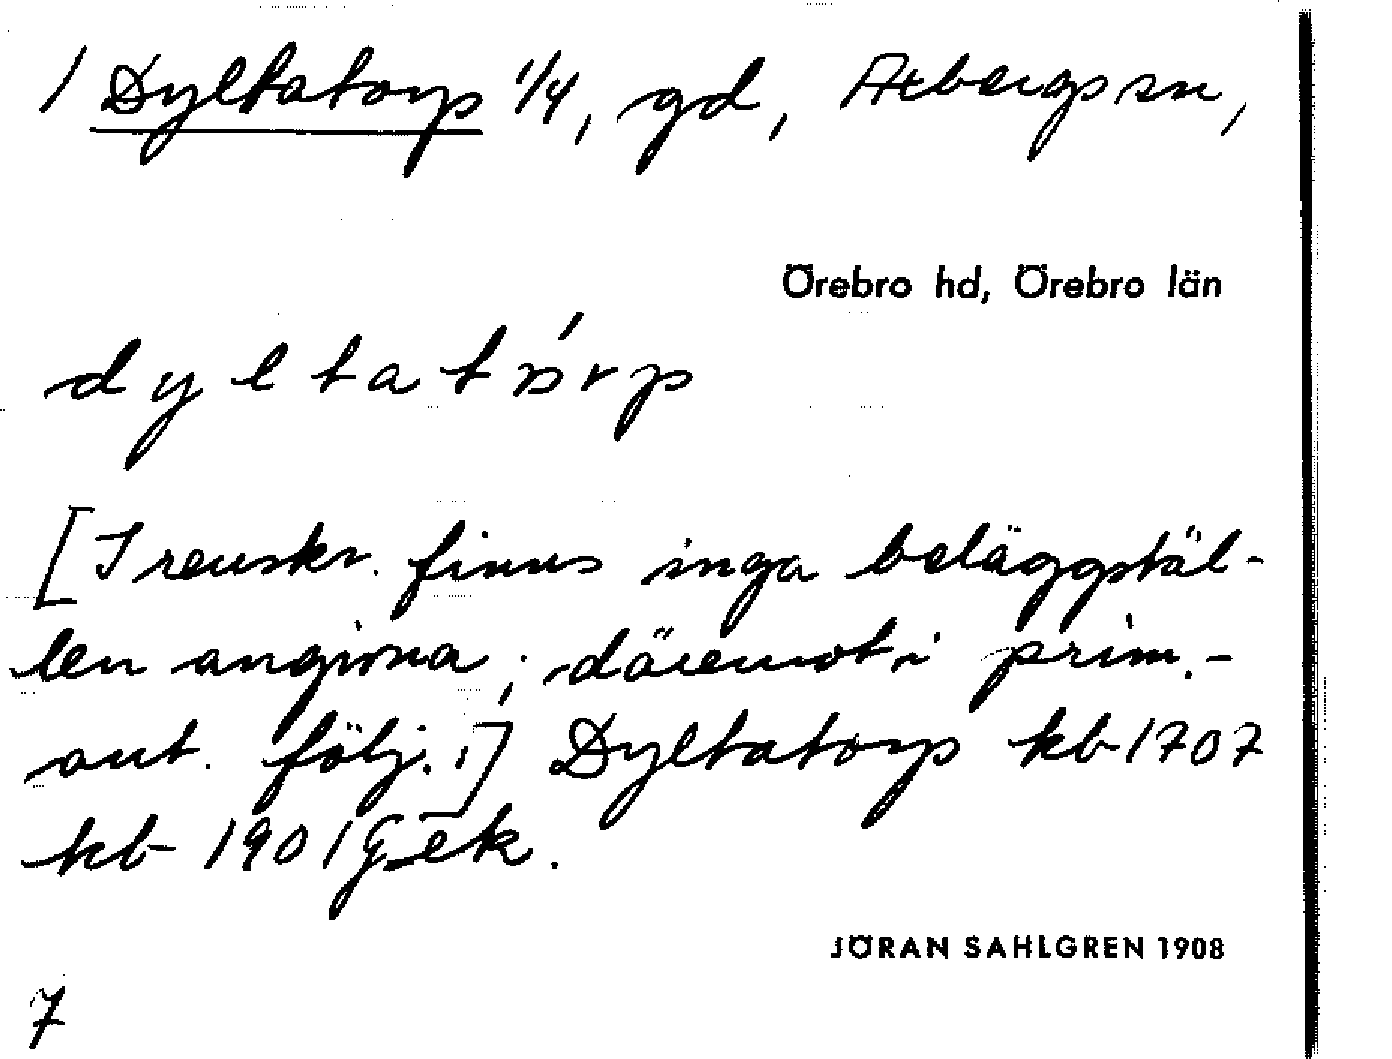 1 Dyltatorp 1/4, gd, Axbergs sn,
Örebro hd, Örebro län
dyltatorp
[I renskr. finns inga beläggstäl-
len angivna; däremot i prim.-
ant. följ.:] Dyltatorp kb 1707
kb 1901 Gek.
JÖRAN SAHLGREN 1908
7